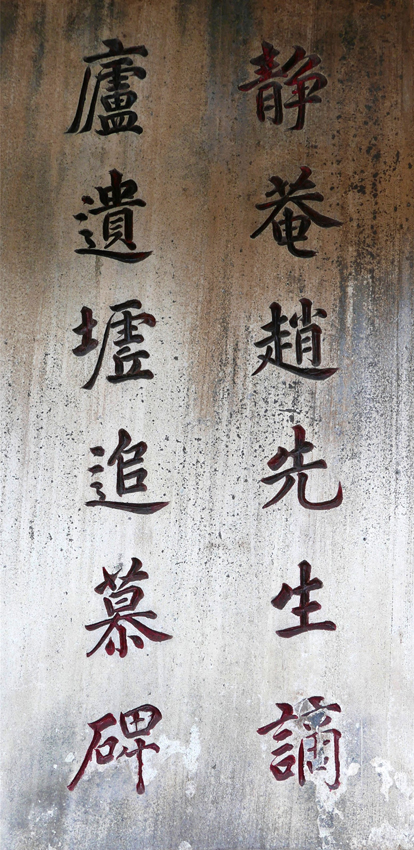 静菴趙先生謫
廬遺墟追慕碑